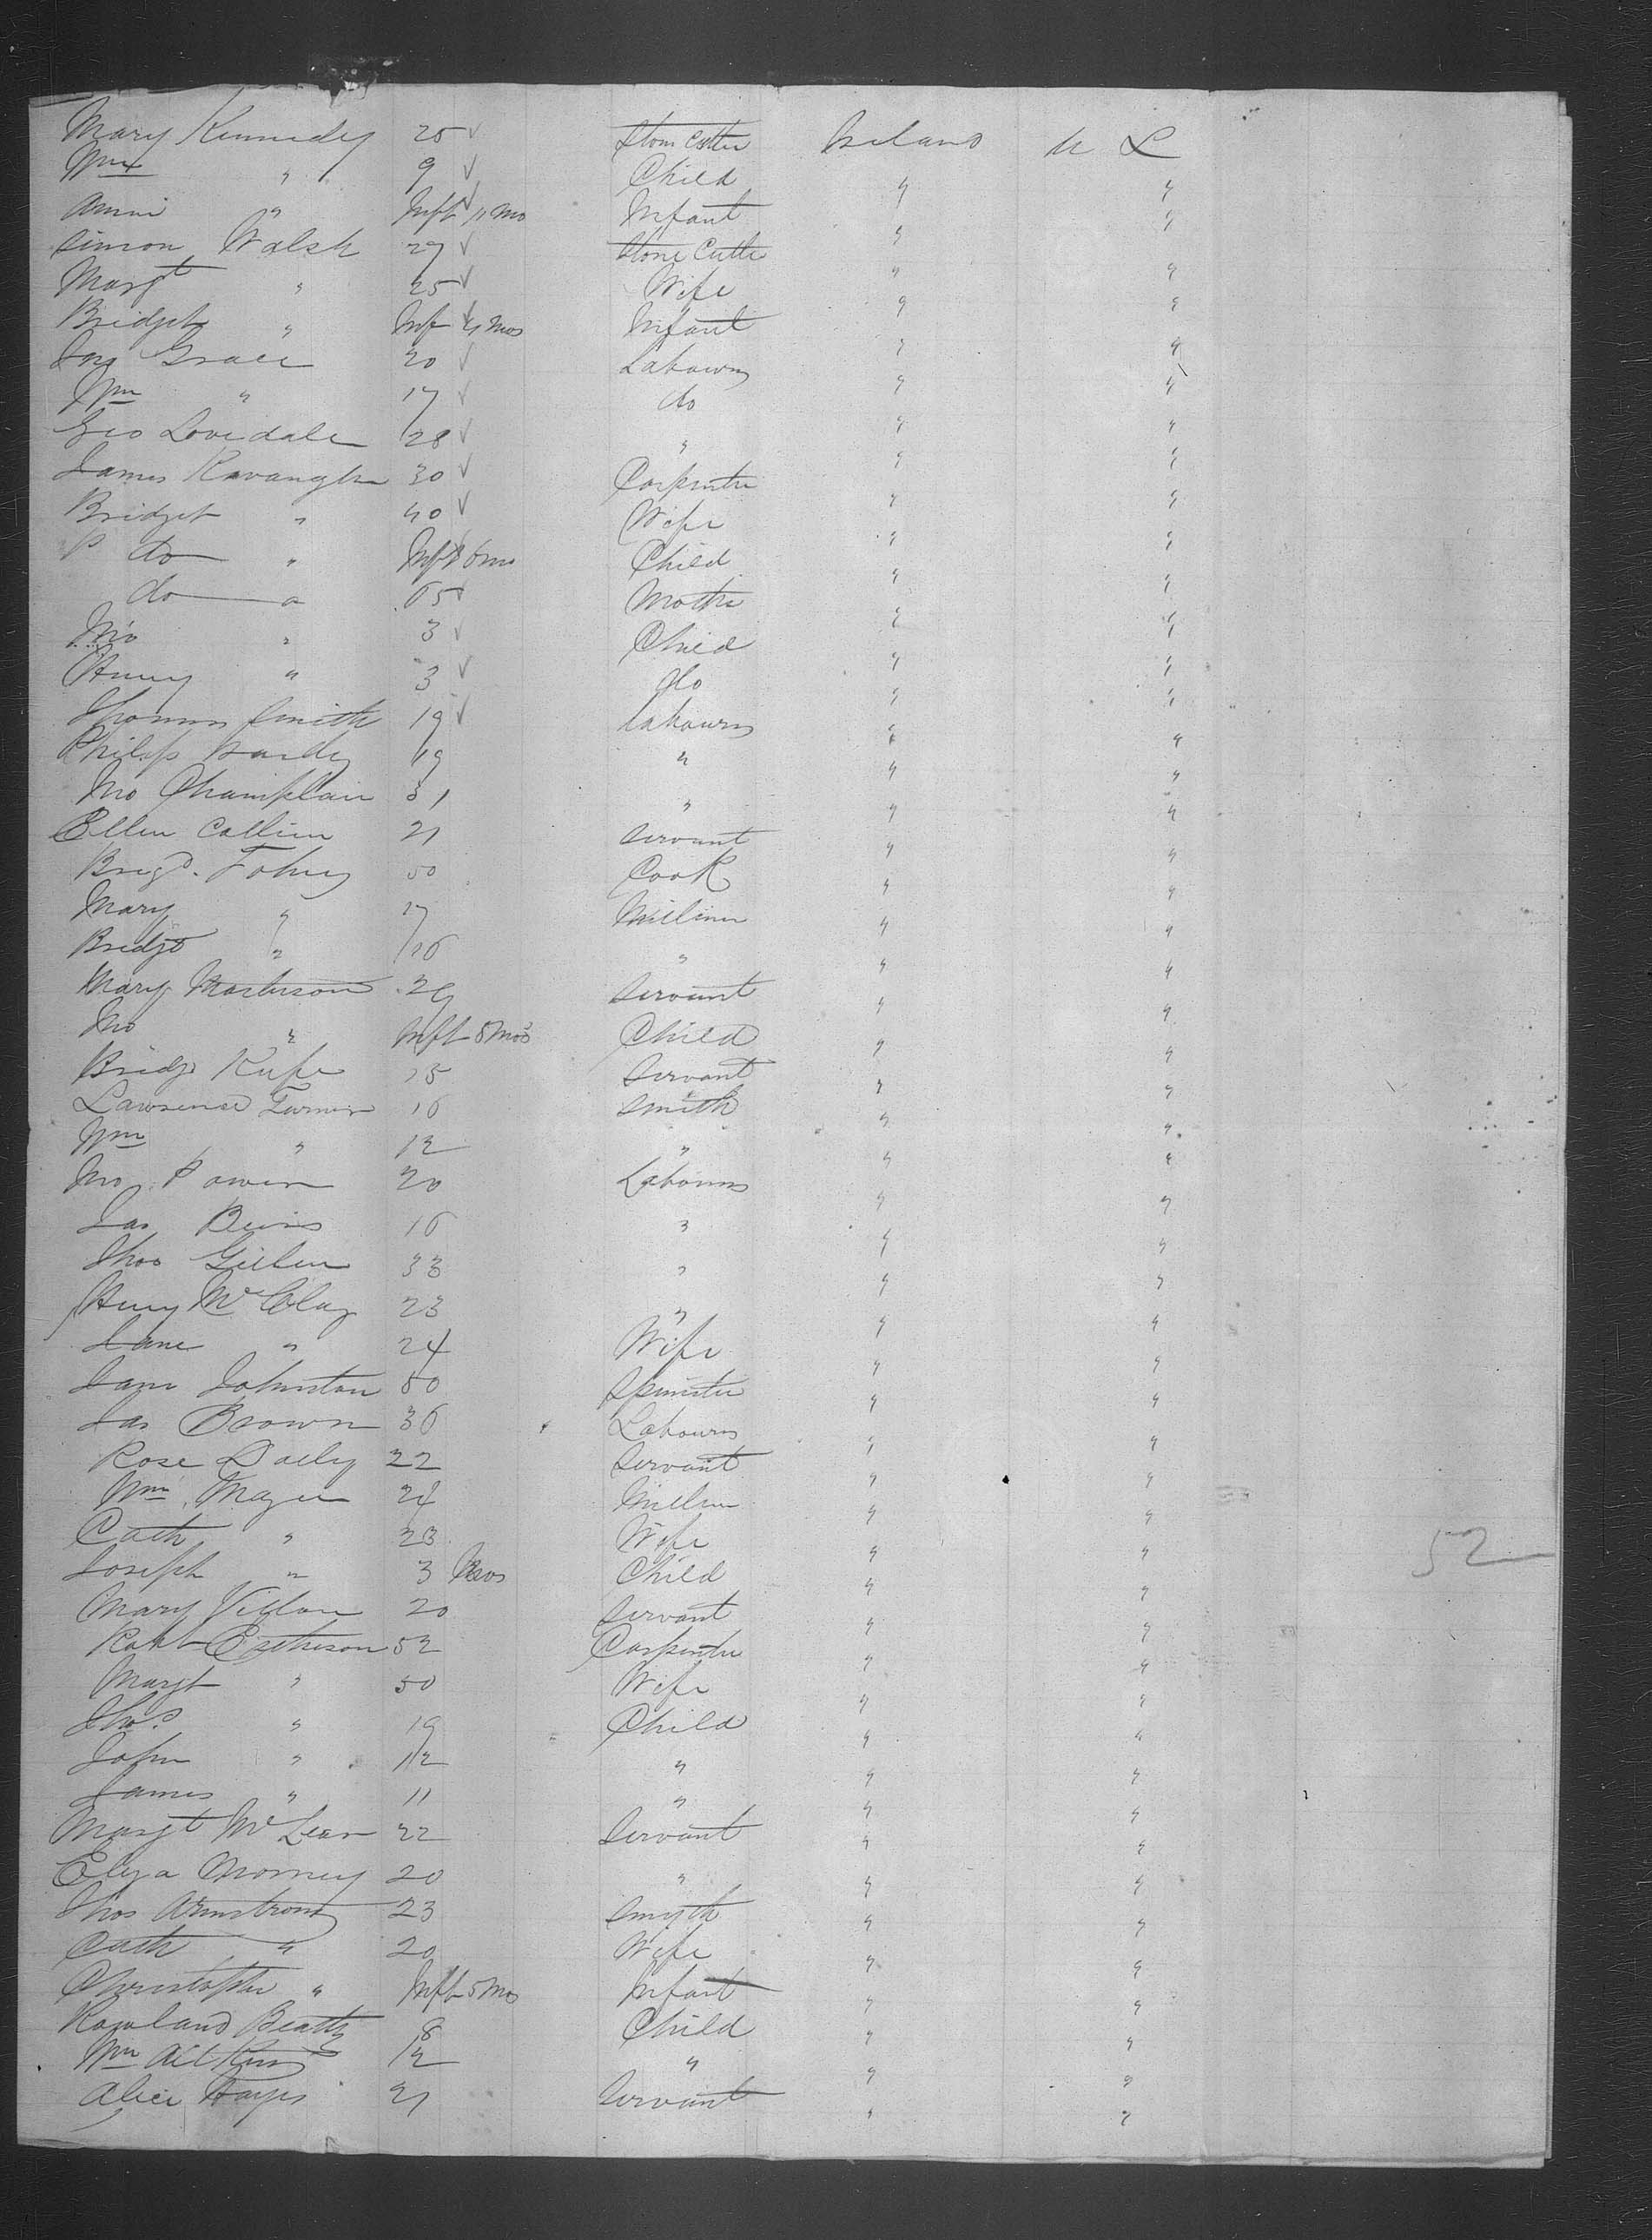 Mary Kennedy 25 ✓ Stone Cutter Ireland U S
Wm " 9 ✓ Child " "
Anni " Inft 11 Mo Infant " "
Simon Walsh 27 ✓ Stone Cutte " "
Margt " 25 ✓ Wife " "
Bridget " Inf 4 Mos Infant " "
Jas Grace 20 ✓ Labourer " "
Wm " 17 ✓ do " "
Geo Lovedale 28 ✓ " " "
James Kavangh 30 ✓ Carpenter " "
Bridget " 40 ✓ Wife " "
P do " Inft 6 mo Child " "
do " 65 ✓ Mother " "
Jno " 3 ✓ Child " "
Henry " 3 ✓ do " "
Thomas Smith 19 ✓ Labourer " "
Philip 19 " " "
Jno Champlain 31 " " "
Ellen Collins 21 Servant " "
Brigd. Fohey 50 Cook " "
Mary " 17 Milliner " "
Bridgt " 16 " " "
Mary Masterson 29 Servant " "
Jno " Inft 8 Mos Child " "
Bridgt 15 Servant " "
Lawrence Turner 16 Smith " "
Wm " 12 " " "
Jno Power 20 Labourer " "
Jas 16 " " "
Thos Gillen 33 " " "
Henry McClay 23 " " "
Jane " 24 Wife " "
Jane Johnston 50 Spinster " "
Jas Brown 36 Labourer " "
Rose Daily 22 Servant " "
Wm Magee 24 " "
Cath " 23 Wife " "
Joseph " 3 Mos Child " "
Mary 20 Servant " "
Robt 52 Carpenter " "
Margt " 50 Wife " "
Thos " 19 Child " "
John " 12 " " "
James " 11 " " "
Margt McLean 22 Servant " "
Eliza 20 " " "
Thos Armstrong 23 Smyth " "
Cath " 20 Wife " "
Christopher " Inft 5 Mo Infant " "
Rowland Beatty 8 Child " "
Wm Aitkins 12 " " "
Alice Hayes 21 Servant " "
52